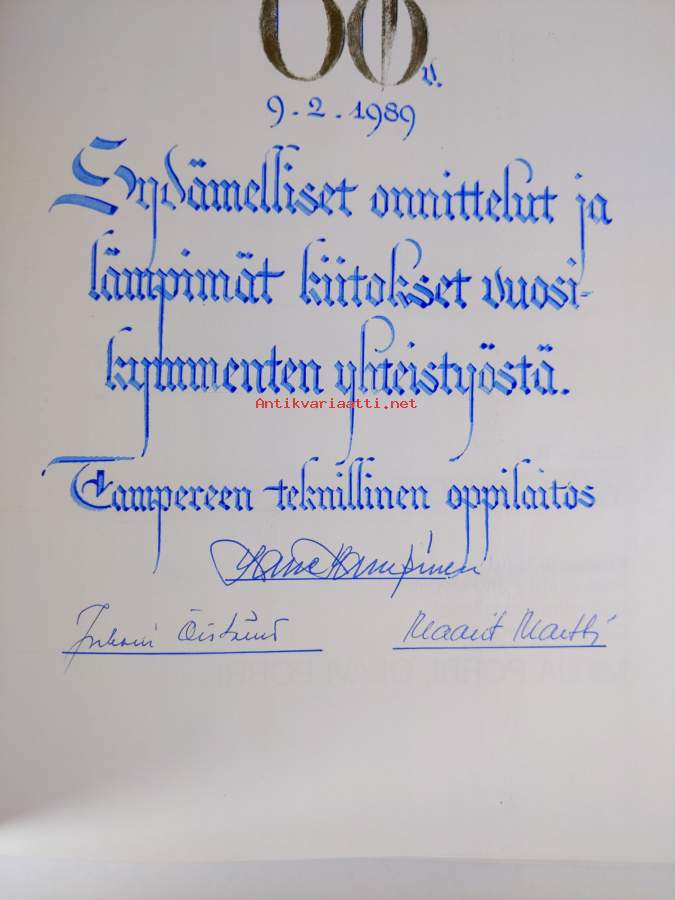 60 v.
9.2.1989
Sydämelliset onnittelut ja
lämpimät kiitokset vuosi-
kymmenten yhteistyöstä.
Antikvariaatti.net
Tampereen teknillinen oppilaitos
Juhani
Maarit